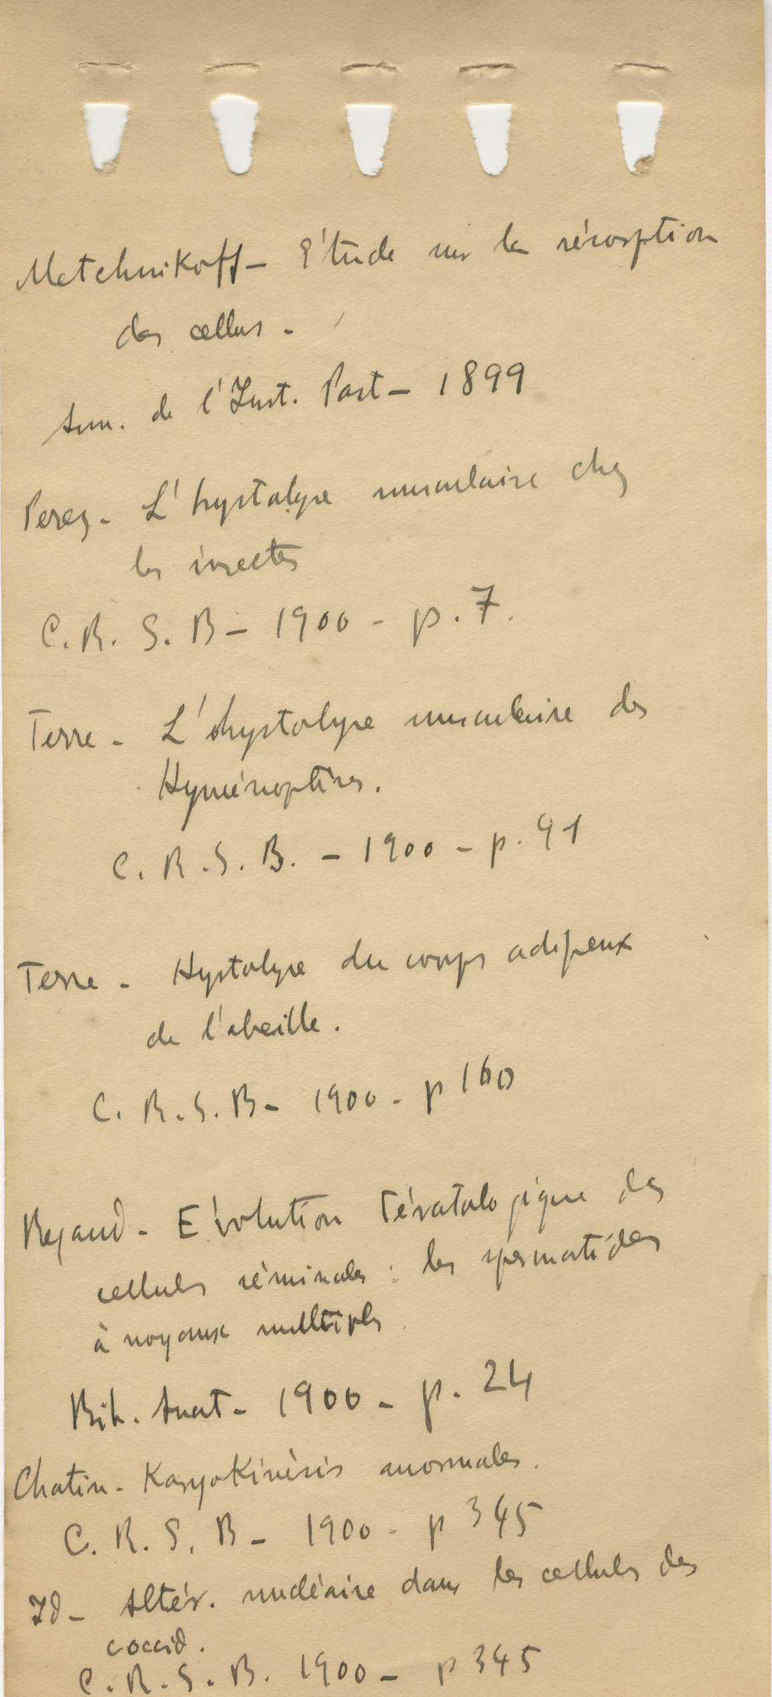 Metchnikoff - Étude sur la résorption
des cellules -
Ann. de l'Inst. Past - 1899
Perez - L'hystolyse musculaire chez
les insectes
C. R. S. B - 1900 - p. 7.
Terre - L'hystolyse musculaire des
Hyménoptères.
C. R. S. B. - 1900 - p. 91
Terre - Hystolyse du corps adipeux
de l'abeille.
C. R. S. B - 1900 - p 160
Regaud - Evolution tératologique des
cellules séminales : les spermatides
à noyaux multiples
Bib. Anat - 1900 - p. 24
Chatin - Karyokinésis anormales.
C. R. S. B - 1900 - p 345
Id - Altér. nucléaire dans les cellules des
coccid.
C. R. S. B. 1900 - p 345